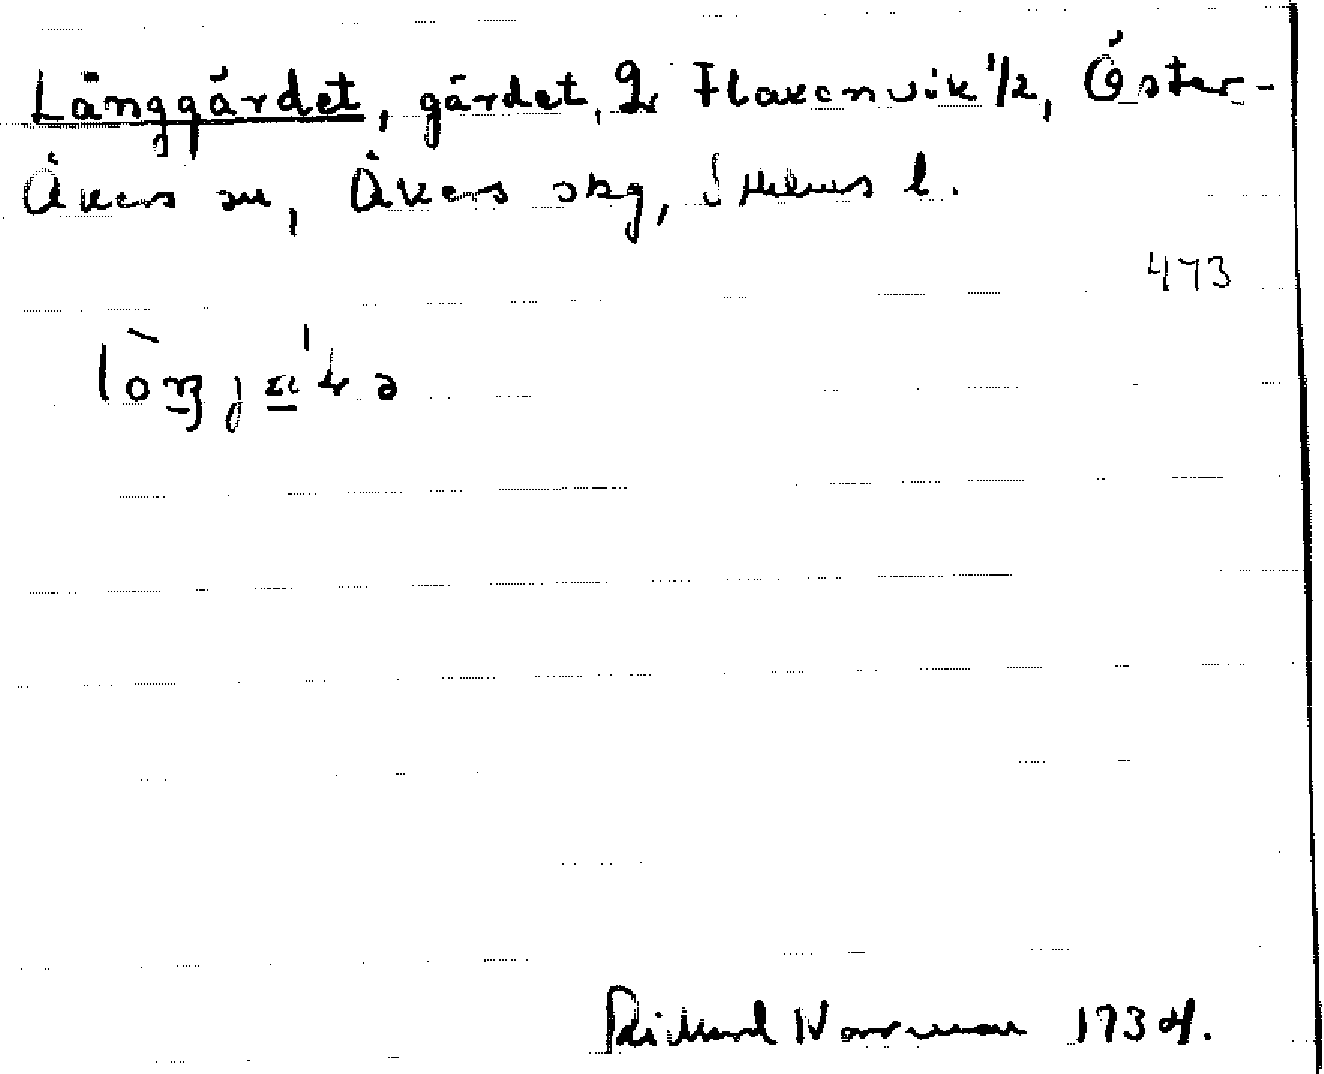 Långgärdet, gärdet, Flaxenvik 1/2, Öster-
Åkers sn, Åkers skg, Sthlms l.
473
Rickard Norrman 1934.